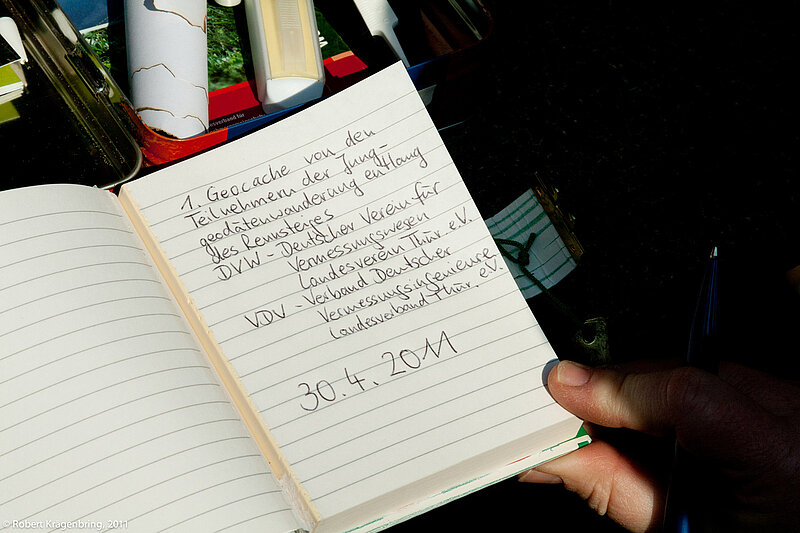 1. Geocache von den
Teilnehmern der Jung-
geodätenwanderung entlang
des Rennsteiges
DVW - Deutscher Verein für
Vermessungswesen
Landesverein Thür. e.V.
VDV - Verband Deutscher
Vermessungsingenieure
Landesverband Thür. e.V.
30.4.2011
© Robert Kragenbring, 2011